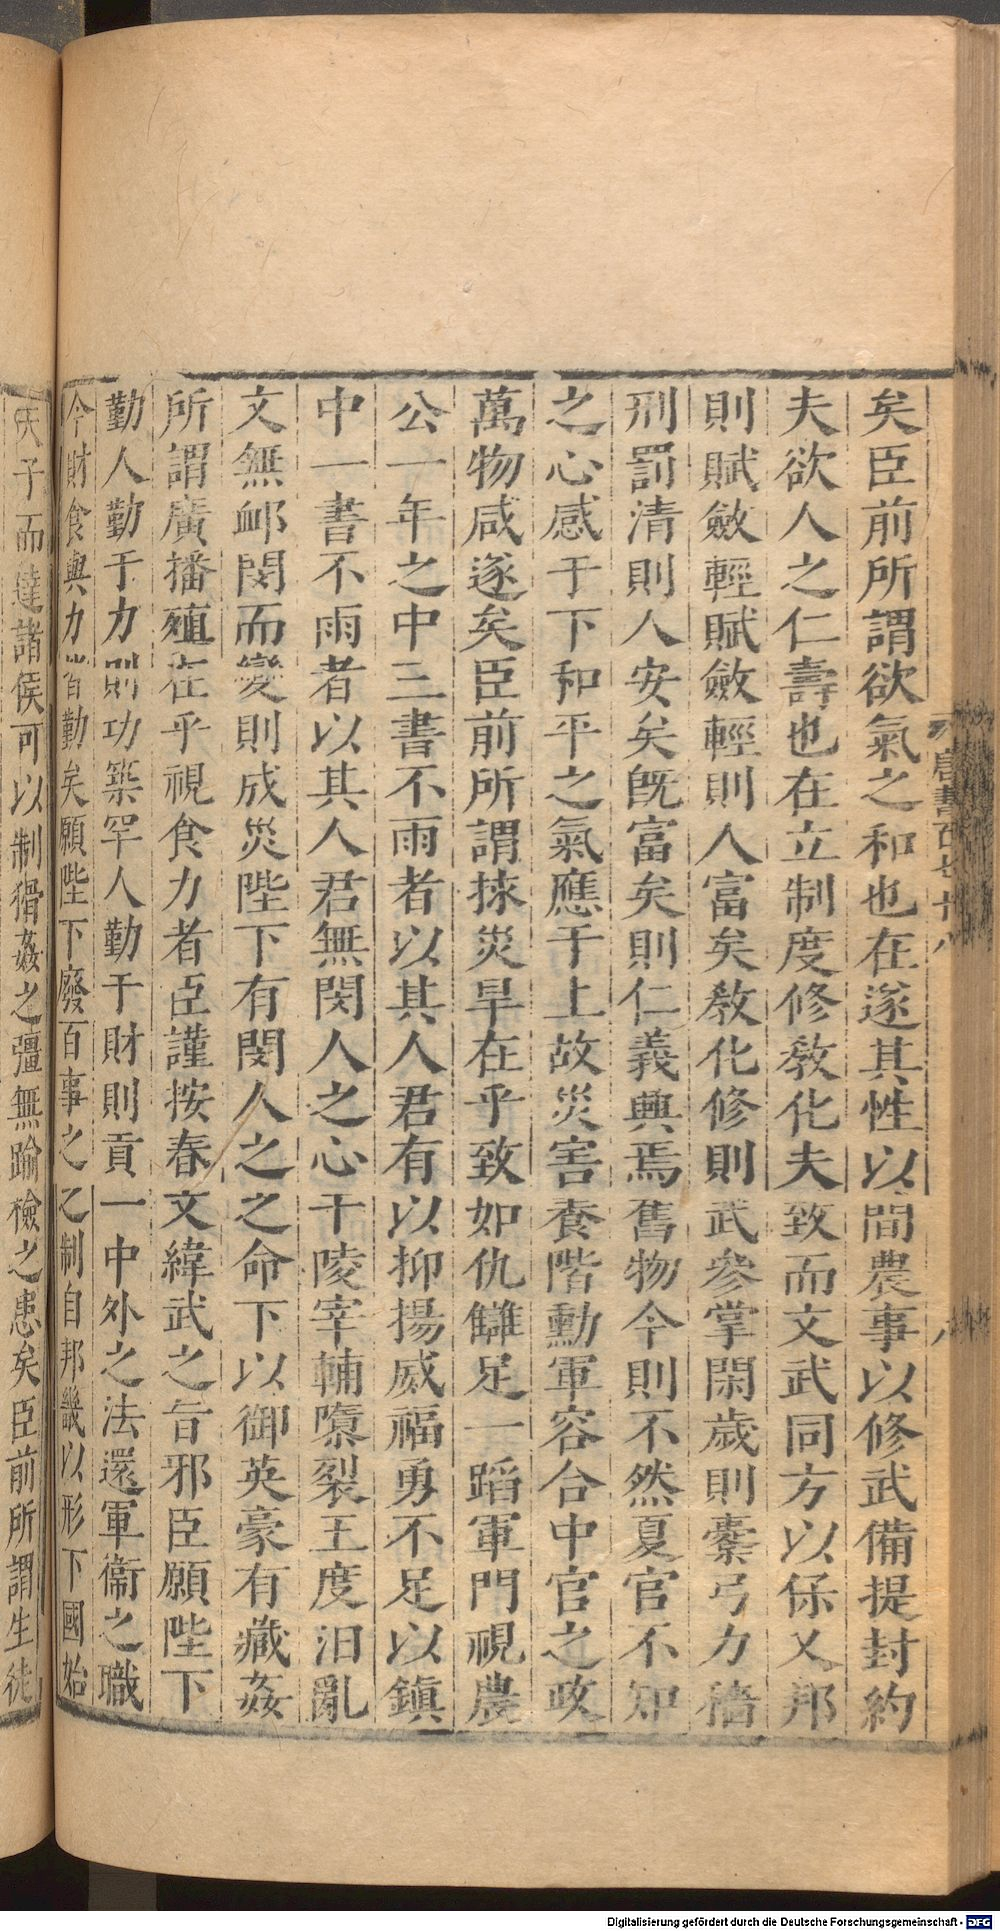 唐書百七十八
八
矣臣前所謂欲氣之和也在遂其性以間農事以修武備提封約
夫欲人之仁壽也在立制度修敎化夫致而文武同方以保乂邦
則賦斂輕賦斂輕則人富矣敎化修則武參掌閑歲則櫜弓力穡
刑罰清則人安矣旣富矣則仁義興焉舊物今則不然夏官不知
之心感于下和平之氣應于上故災害養階勳軍容合中官之政
萬物咸遂矣臣前所謂捄災旱在乎致如仇讎足一蹈軍門視農
公一年之中三書不雨者以其人君有以抑揚威福勇不足以鎮
中一書不雨者以其人君無閔人之心干陵宰輔隳裂王度汨亂
文無卹閔而變則成災陛下有閔人之之命下以御英豪有藏姦
所謂廣播殖在乎視食力者臣謹按春文緯武之旨邪臣願陛下
勤人勤于力則功築罕人勤于財則貢一中外之法還軍衞之職
今財食與力皆勤矣願陛下廢百事之之制自邦畿以形下國始
天子而達諸侯可以制猾姦之彊無踰檢之患矣臣前所謂生徒
Digitalisierung gefördert durch die Deutsche Forschungsgemeinschaft - DFG